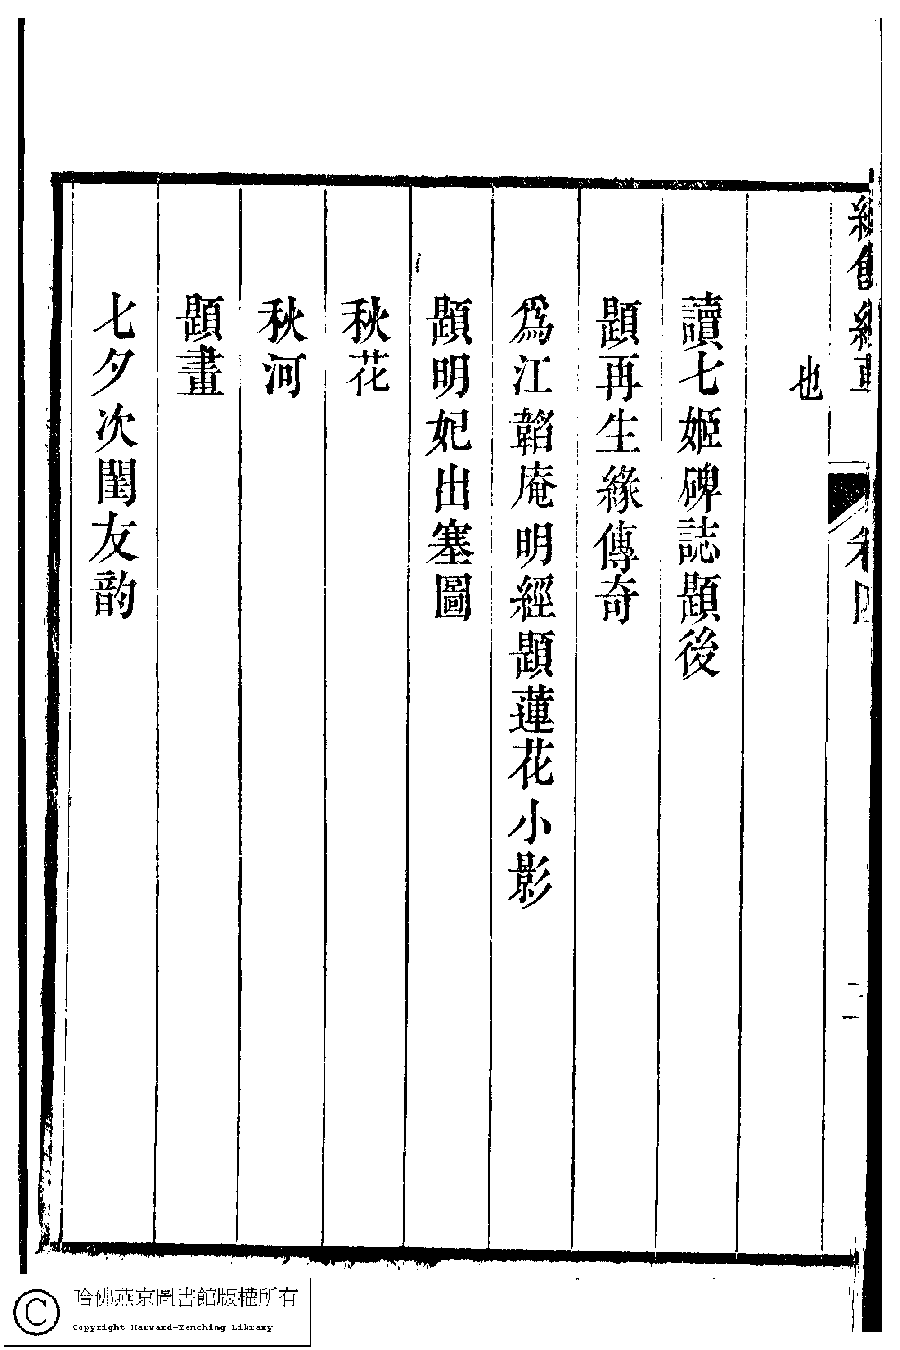 也
讀七姬碑誌題後
題再生緣傳奇
爲江韜庵明經題蓮花小影
題明妃出塞圖
秋花
秋河
題畫
七夕次閨友韵
哈佛燕京圖書館版權所有
Copyright Harvard-Yenching Library